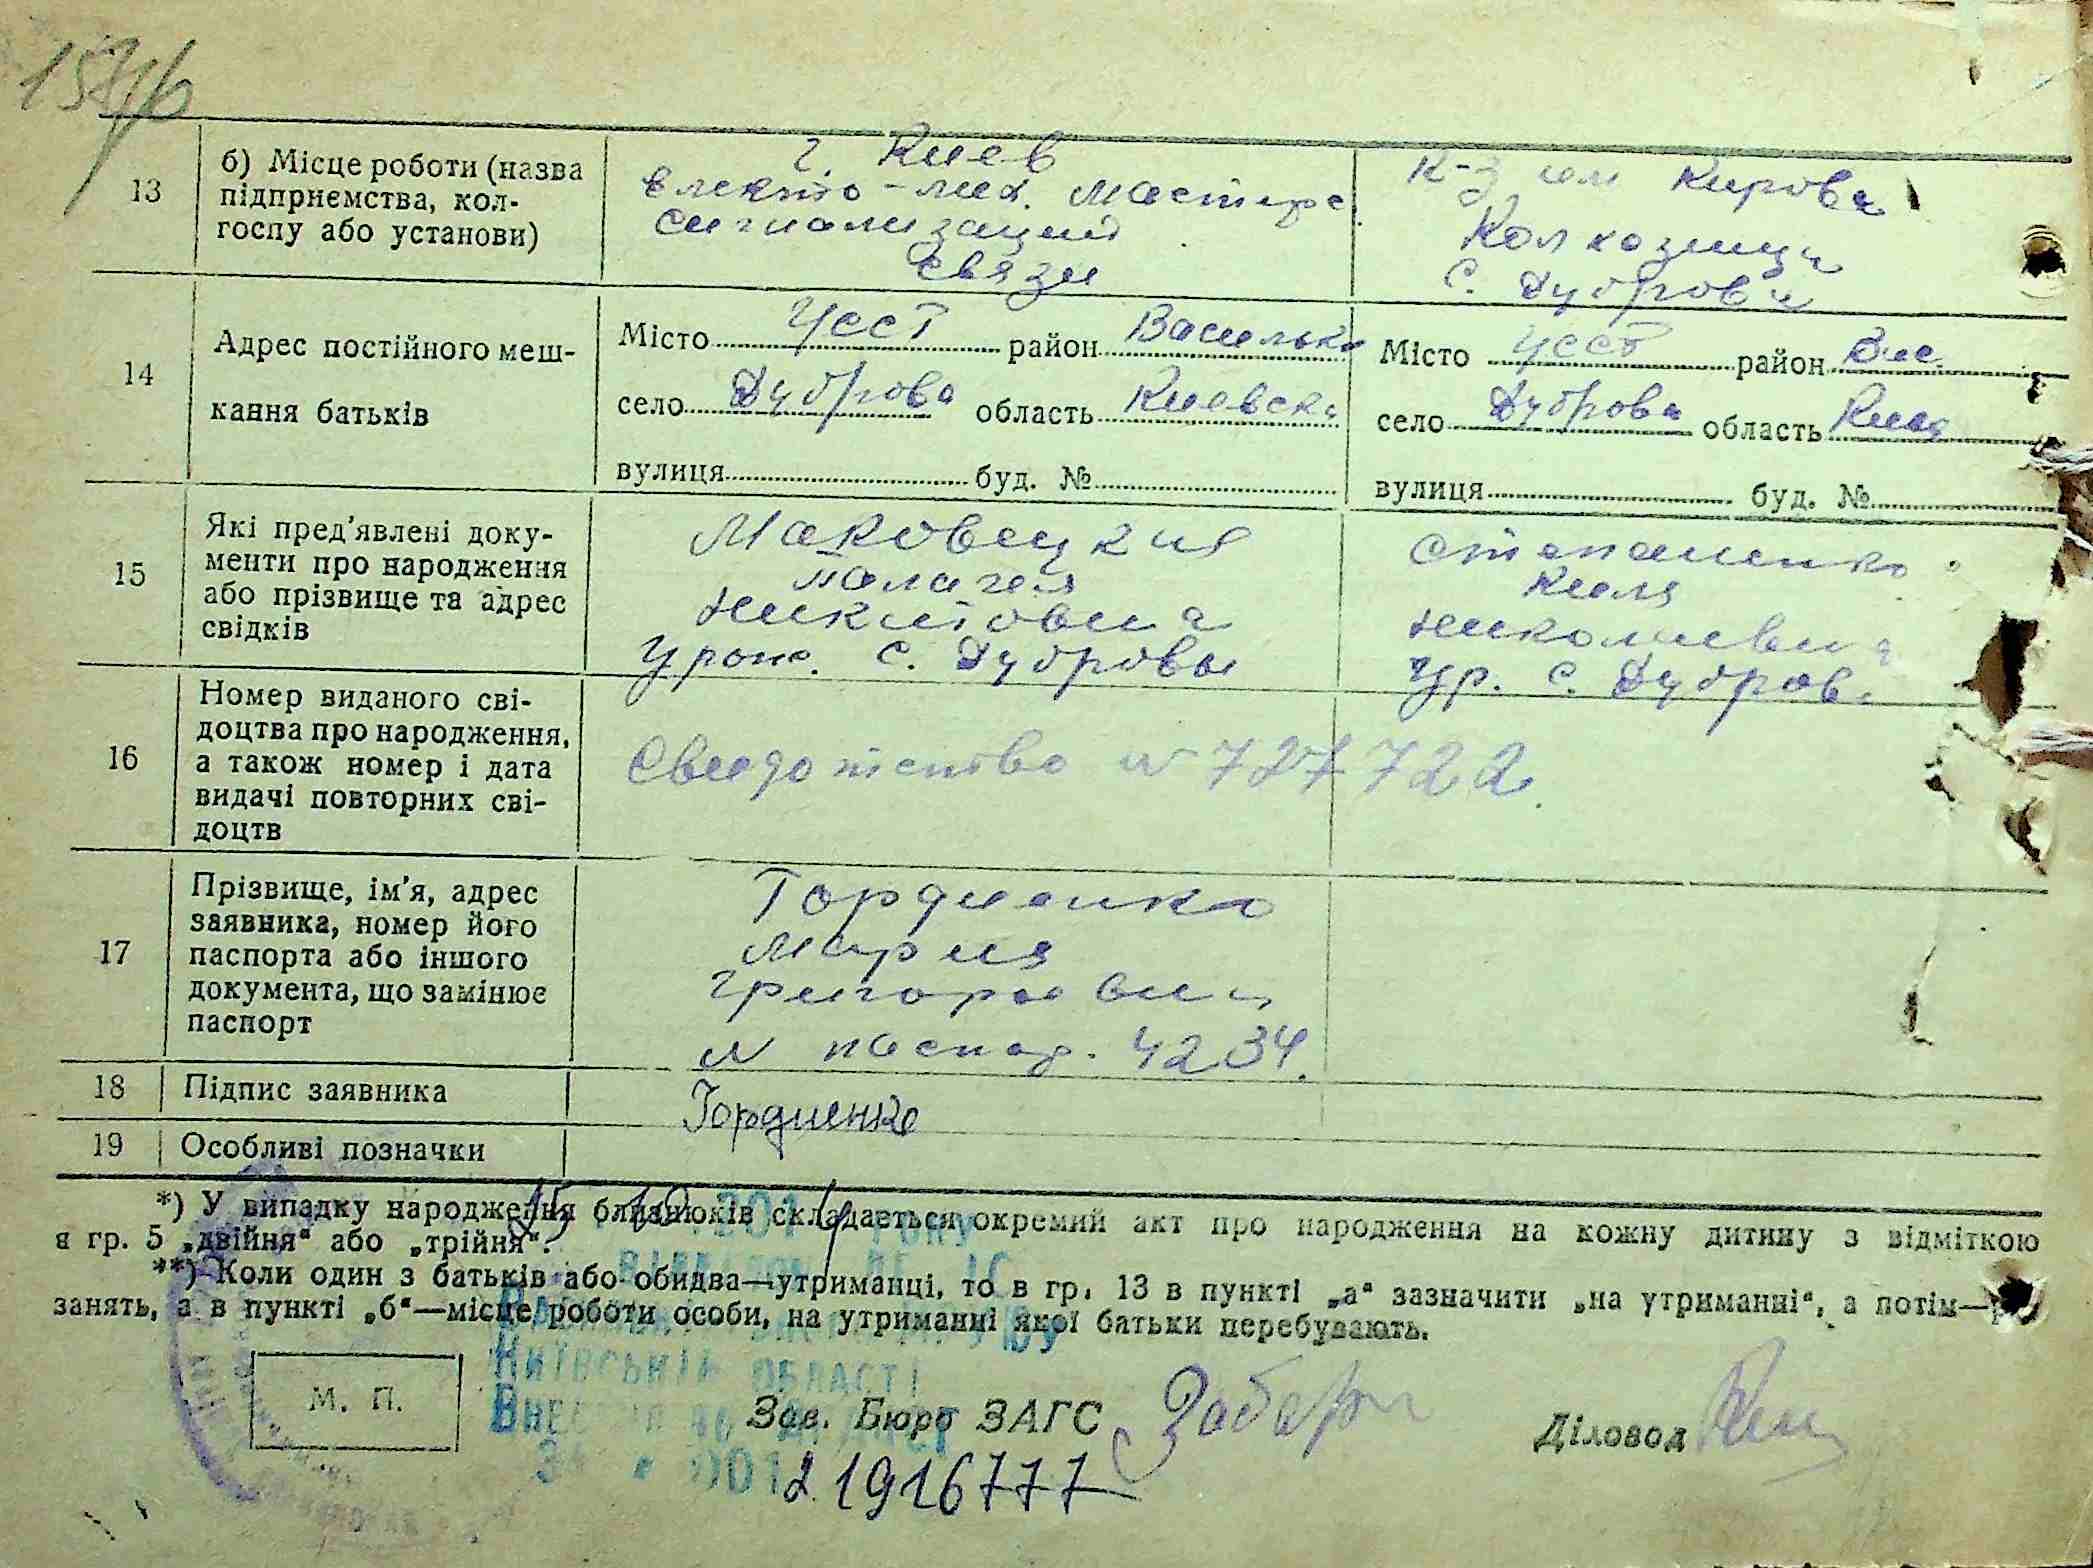 13
б) Місце роботи (назва
підприємства, кол-
госпу або установи)
г. Киев
електо-мех. мастерс.
сигнализации
связи
К-з им Кирова
Колхозница
с. Дуброва
14
Адрес постійного меш-
кання батьків
Місто УССР район Васильк
село Дуброва область Киевска
вулиця буд. №
Місто УССР район Вас.
село Дуброва область Киев
вулиця буд. №
15
Які пред'явлені доку-
менти про народження
або прізвище та адрес
свідків
Маковецкия
Палагея
Никитовна
Урож. с. Дубровы
Степаненко
Киля
Николаевна
Ур. с. Дубров
16
Номер виданого сві-
доцтва про народження,
а також номер і дата
видачі повторних сві-
доцтв
Свидотенство № 727722.
17
Прізвище, ім'я, адрес
заявника, номер його
паспорта або іншого
документа, що замінює
паспорт
Гордиенко
Мария
Григорьевна
№ паспор. 4234.
18 Підпис заявника
Гордиенко
19 Особливі позначки
*) У випадку народження близнюків складається окремий акт про народження на кожну дитину з відміткою
в гр. 5 „двійня“ або „трійня“.
**) Коли один з батьків або обидва—утриманці, то в гр. 13 в пункті „а“ зазначити „на утриманні“, а потім—
занять, а в пункті „б“—місце роботи особи, на утриманні якої батьки перебувають.
201 року
Київській області
М. П.
Зав. Бюро ЗАГС
Діловод
21916777